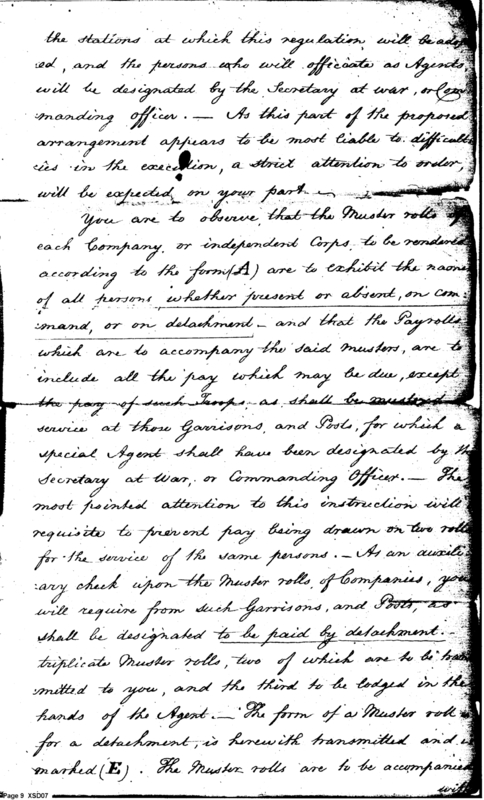 the stations at which this regulation will be adop
ed, and the persons who will officiate as Agents,
will be designated by the Secretary at war, or Com
manding officer. — As this part of the proposed
arrangement appears to be most liable to difficult
cies in the execution, a strict attention to order,
will be expected, on your part —
You are to observe, that the Muster rolls of
each Company, or independent Corps, to be rendered
according to the form (A) are to exhibit the name
of all persons whether present or absent, on com=
mand, or on detachment — and that the Payrolls
which are to accompany the said musters, are to
include all the pay which may be due, except
the pay of such Troops as shall be mustered
service at those Garrisons, and Posts, for which a
special Agent shall have been designated by th
Secretary at War, or Commanding Officer. — The
most pointed attention to this instruction will
requisite to prevent pay being drawn on two rolls
for the service of the same persons. — As an auxili
ary check upon the Muster rolls of Companies, you
will require from such Garrisons, and Posts, as
shall be designated to be paid by detachment. —
triplicate Muster rolls, two of which are to be tran
smitted to you, and the third to be lodged in the
hands of the Agent. — The form of a Muster roll
for a detachment, is herewith transmitted and is
marked (E). The Muster rolls are to be accompanied
with
Page 9 XSD07